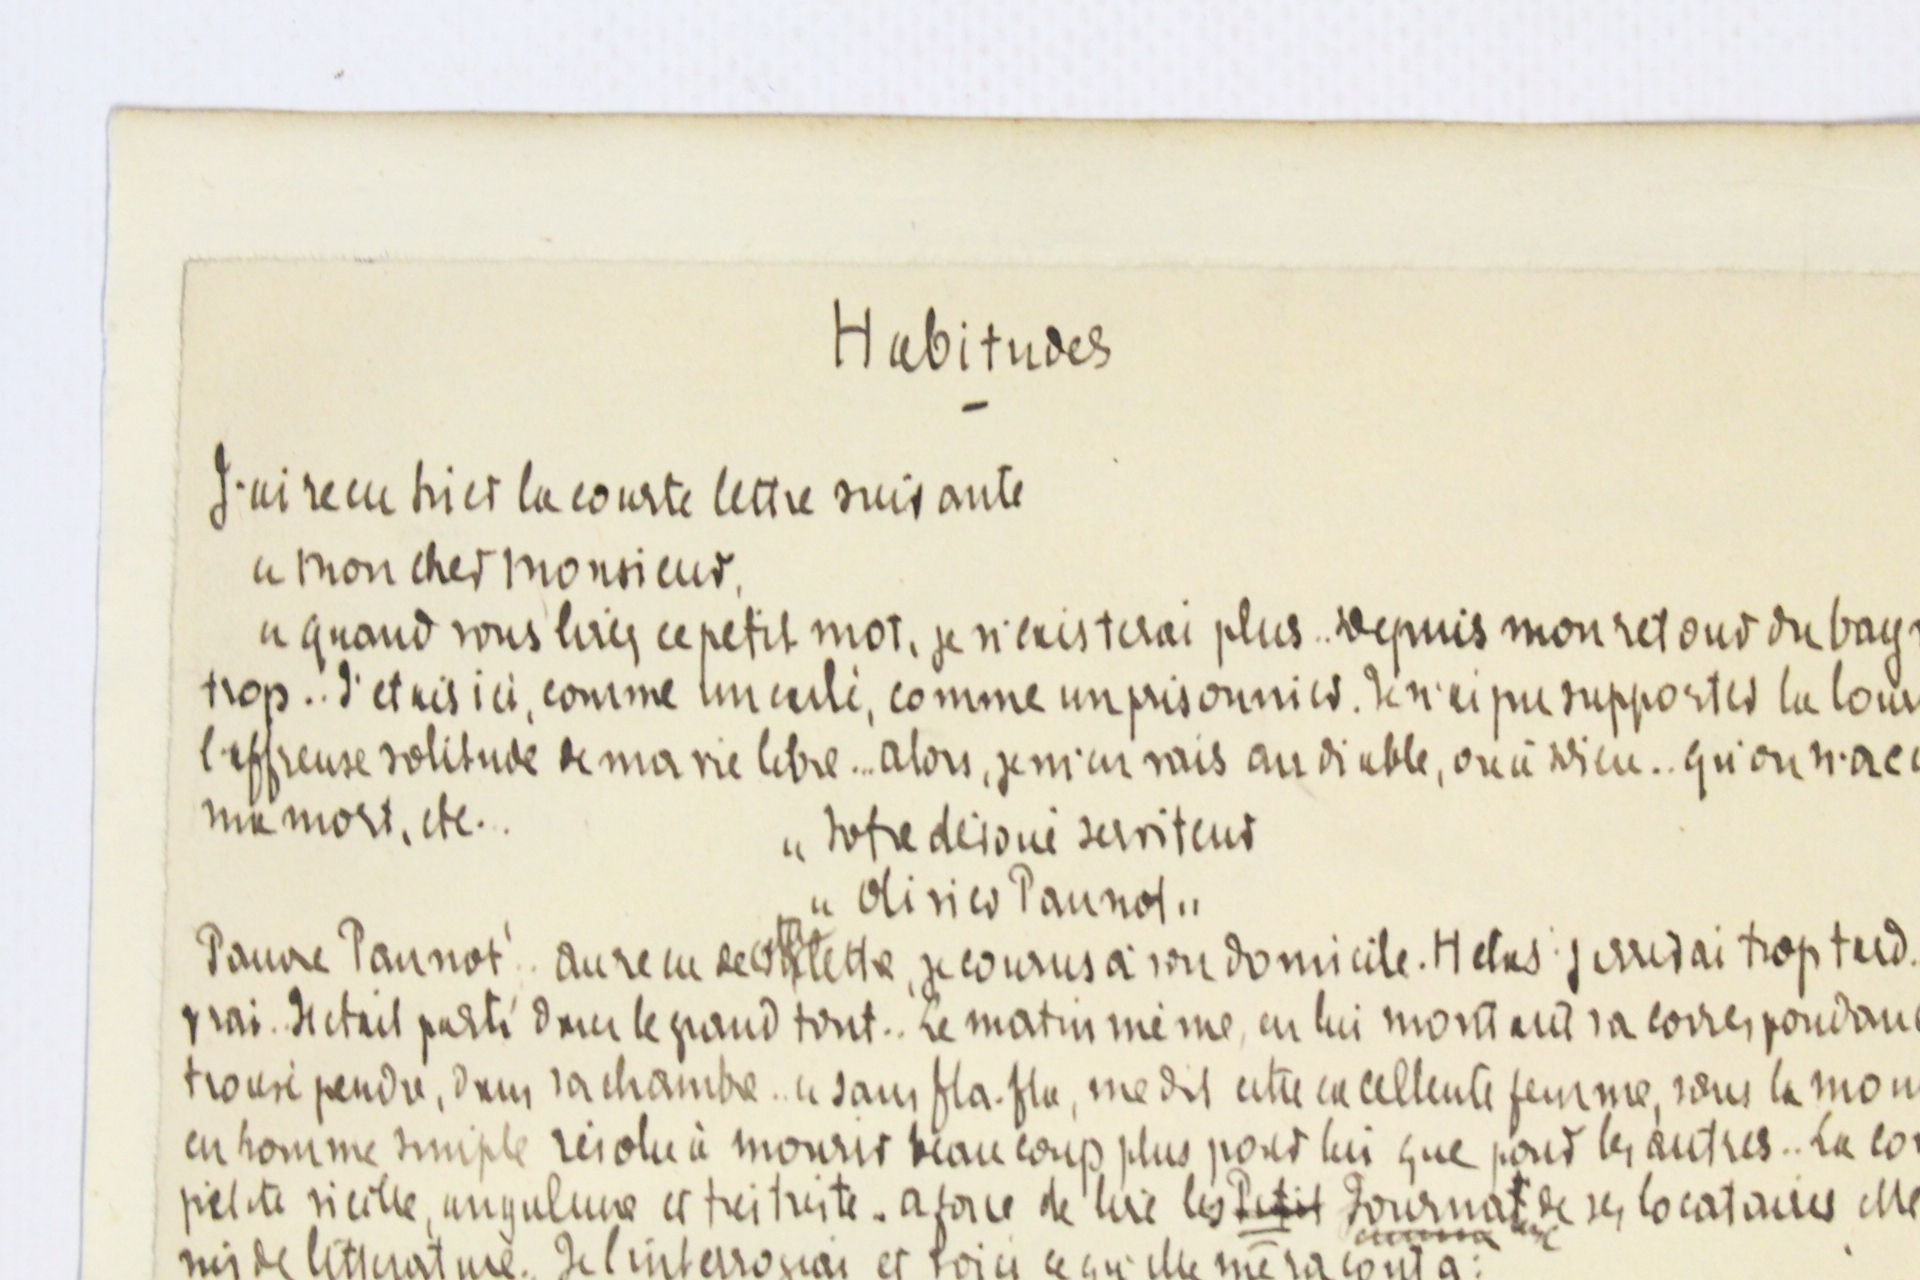 Habitudes
J'ai reçu hier la courte lettre suivante
« Mon cher Monsieur,
« Quand vous lirez ce petit mot, je n'existerai plus.. Depuis mon retour du bag
trop.. J'étais ici, comme un exilé, comme un prisonnier. Je n'ai pu supporter la lour
l'affreuse solitude de ma vie libre... Alors, je m'en vais au diable, ou à Dieu.. qu'on n'acc
ma mort, etc...
« Votre dévoué serviteur
« Olivier Paunot »
Pauvre Paunot!.. Au reçu de cette lettre, je courus à son domicile. Hélas! j'arrivai trop tard.
vrai. Il était parti dans le grand tout.. Le matin même, en lui montant sa correspondanc
trouvé pendu, dans sa chambre.. « Sans fla-fla, me dit cette excellente femme, sous la
en homme simple résolu à mourir beaucoup plus pour lui que pour les autres.. La
petite vieille, anguleuse et très triste. A force de lire les Petit Journal de ses locataires elle
de littérature.. Je l'interrogeai et voici ce qu'elle me raconta: